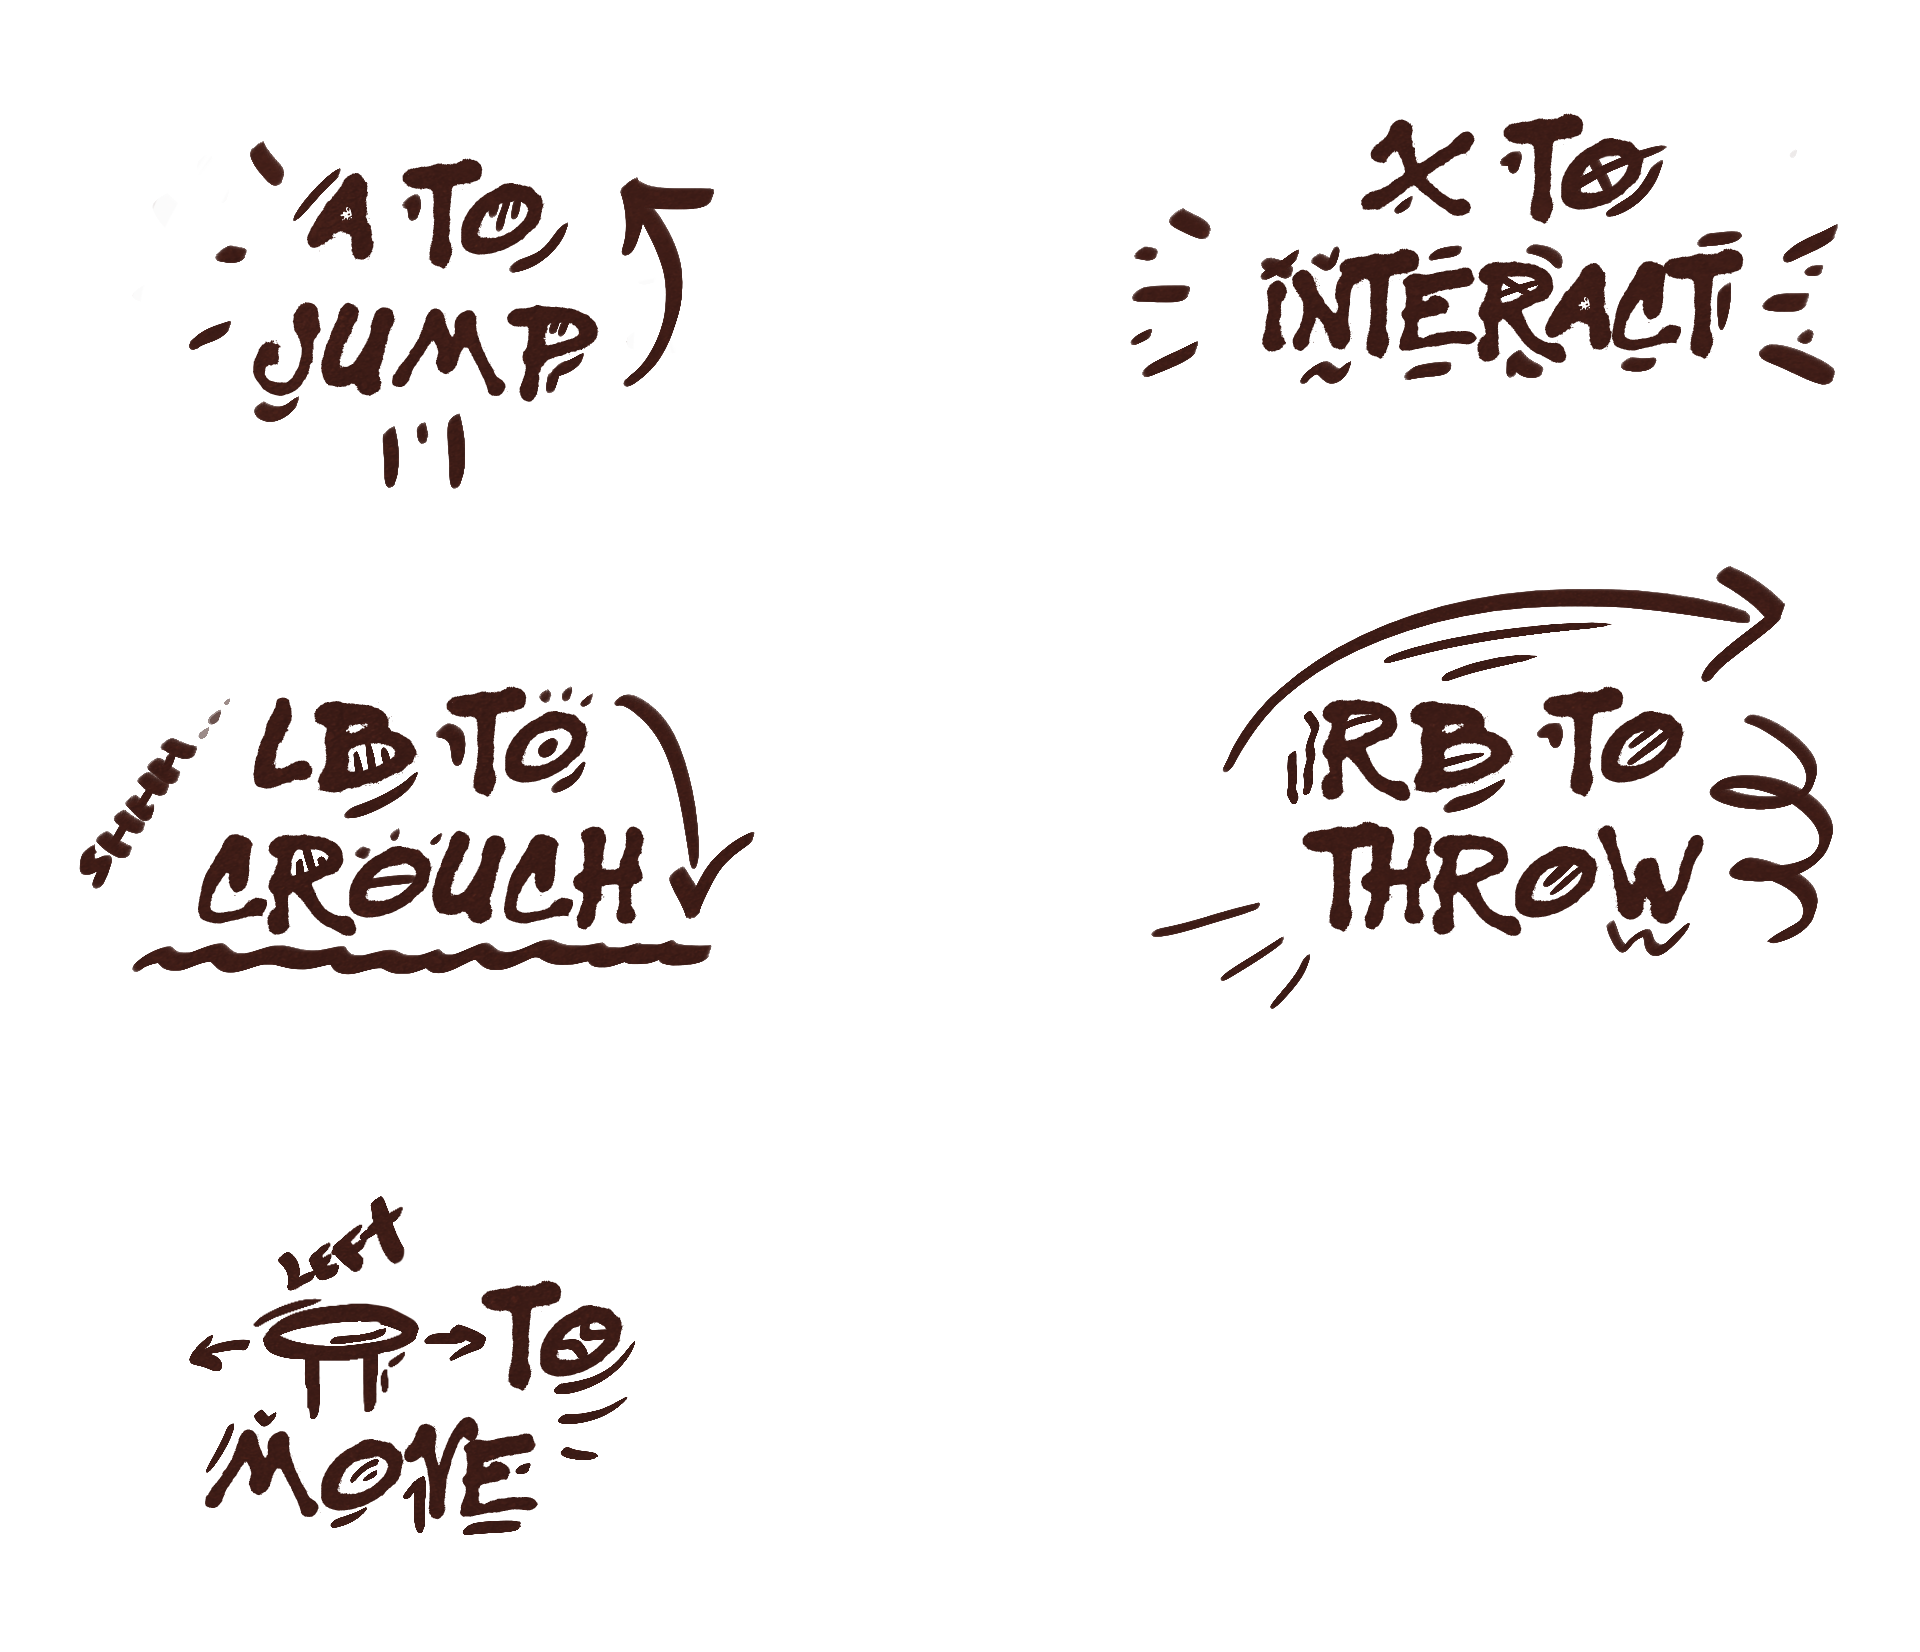 A TO
JUMP
X TO
INTERACT
SHHHH
LB TO
CROUCH
RB TO
THROW
LEFT
TO
MOVE